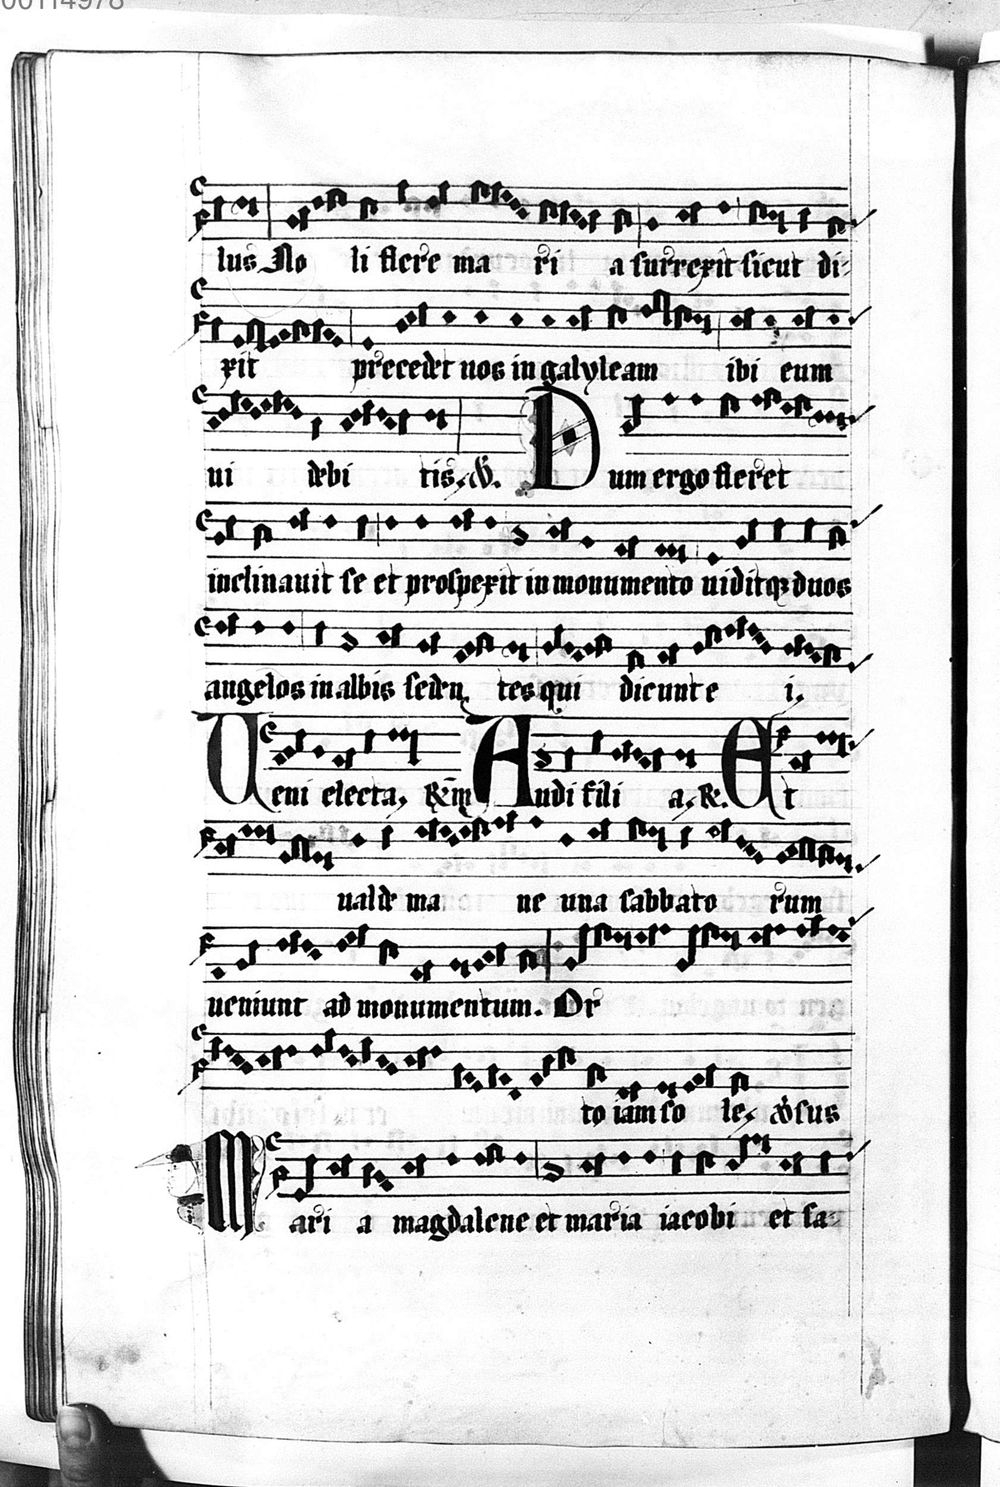 00114978
lus No li flere ma ri a surrexit sicut di-
xit precedet uos in galyleam ibi eum
ui debi tis. V. Dum ergo fleret
inclinauit se et prospexit in monumento uiditqz duos
angelos in albis seden tes qui dicunt e i.
Ueni electa, Audi fili a, R. Et
ualde ma ne una sabbato rum
ueniunt ad monumentum. Or
to iam so le, vsus
Mari a magdalene et maria iacobi et sa-